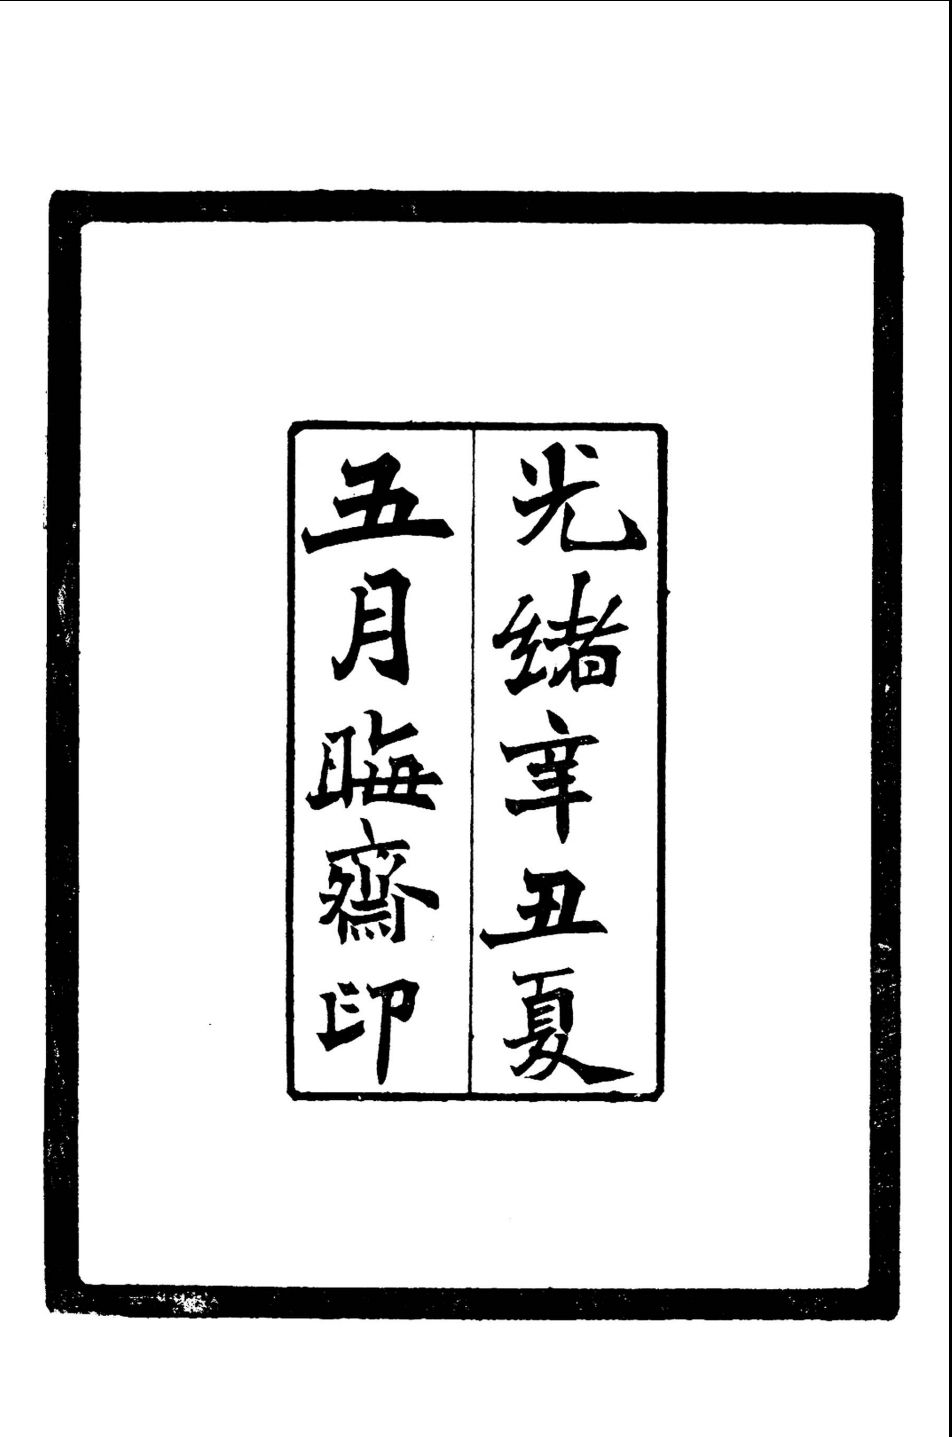 光緒辛丑夏
五月晦齋印